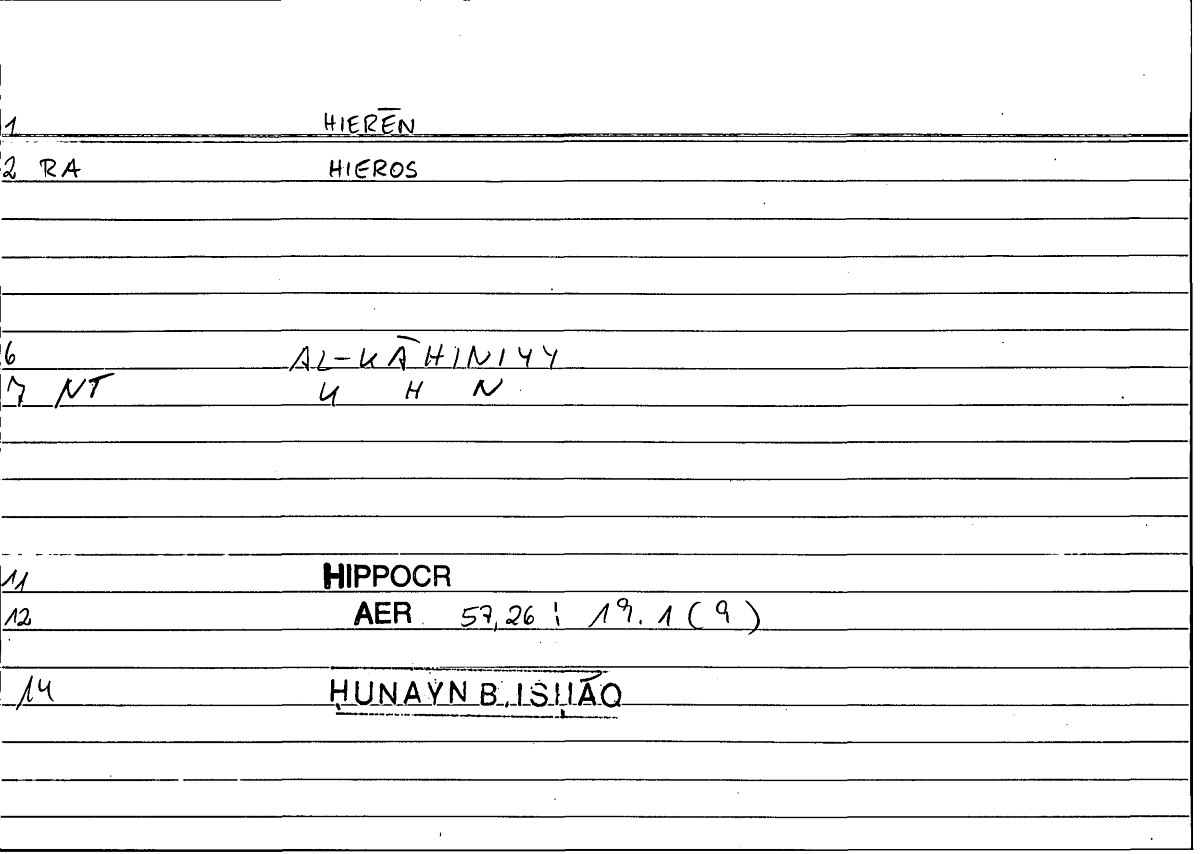 1 HIERĒN
2 RA HIEROS
6 AL-KĀHINIYY
7 NT K H N
11 HIPPOCR
12 AER 57,26 ; 19.1 (9)
14 ḤUNAYN B. ISḤĀQ